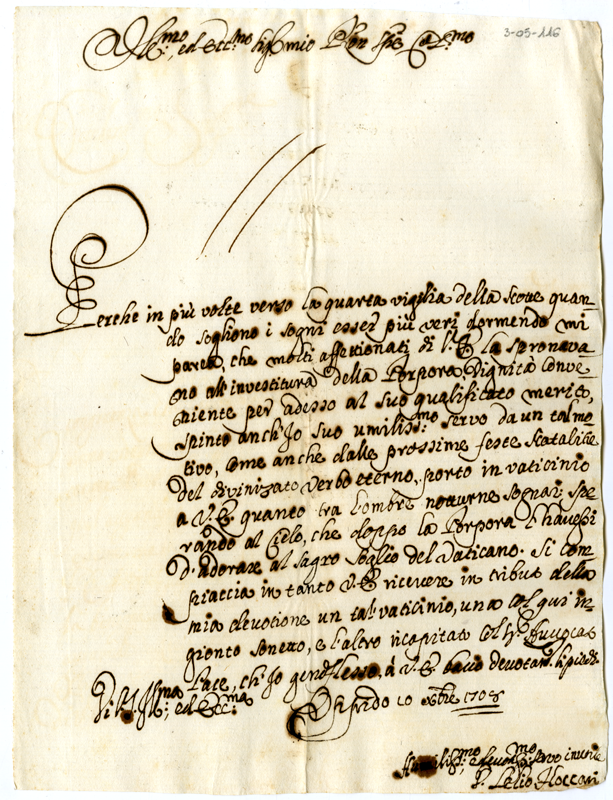 Ill.mo, ed Ecc.mo Sig.r mio P̃ron 
3-05-116
Perche in più volte verso la quarta vigilia della scorse quan=
do sogliono i sogni esser più veri dormendo mi
parea, che molti affettionati di V.E. la spronava=
no all'investitura della Porpora, Dignità conve=
niente per adesso al suo qualificato merito,
spinto anch'Io suo umiliss.mo servo da un tal mo=
tivo, come anche dalle prossime feste Natalitie
del divinizato Verbo eterno, porto in vaticinio
a V.E. quanto tra l'ombre notturne sognai spe=
rando al Cielo, che doppo la Porpora l'havessi
d'adorare al sagro soglio del Vaticano. Si com=
piaccia in tanto V.E. ricevere in tributo della
mia devotione un tal vaticinio, un a col qui in=
gionto sonetto, e l'altro ricapitato col S.r Avvocat
Pace, ch'Io genuflesso, à V.E. bacio devotam. li piedi
Di V.S. Ill.ma, ed Ecc.ma
10 Xbre 1708
Humiliss.mo, e devotiss.mo servo
P. Lelio